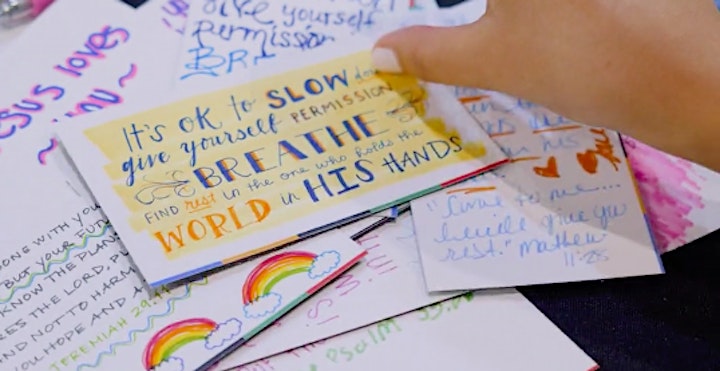 Give yourself
permission
BR
Jesus loves
you
IT'S OK to SLOW down
give yourself PERMISSION
BREATHE
FIND rest in the one who holds the
WORLD in HIS HANDS
his
"Come to me...
I will give you
rest." Mathew
11:28
DONE WITH YOU
BUT YOUR FUTU
KNOW THE PLAN
RES THE LORD, PL
AND NOT TO HARM
YOU HOPE AND A
JEREMIAH 29:11
Psalm